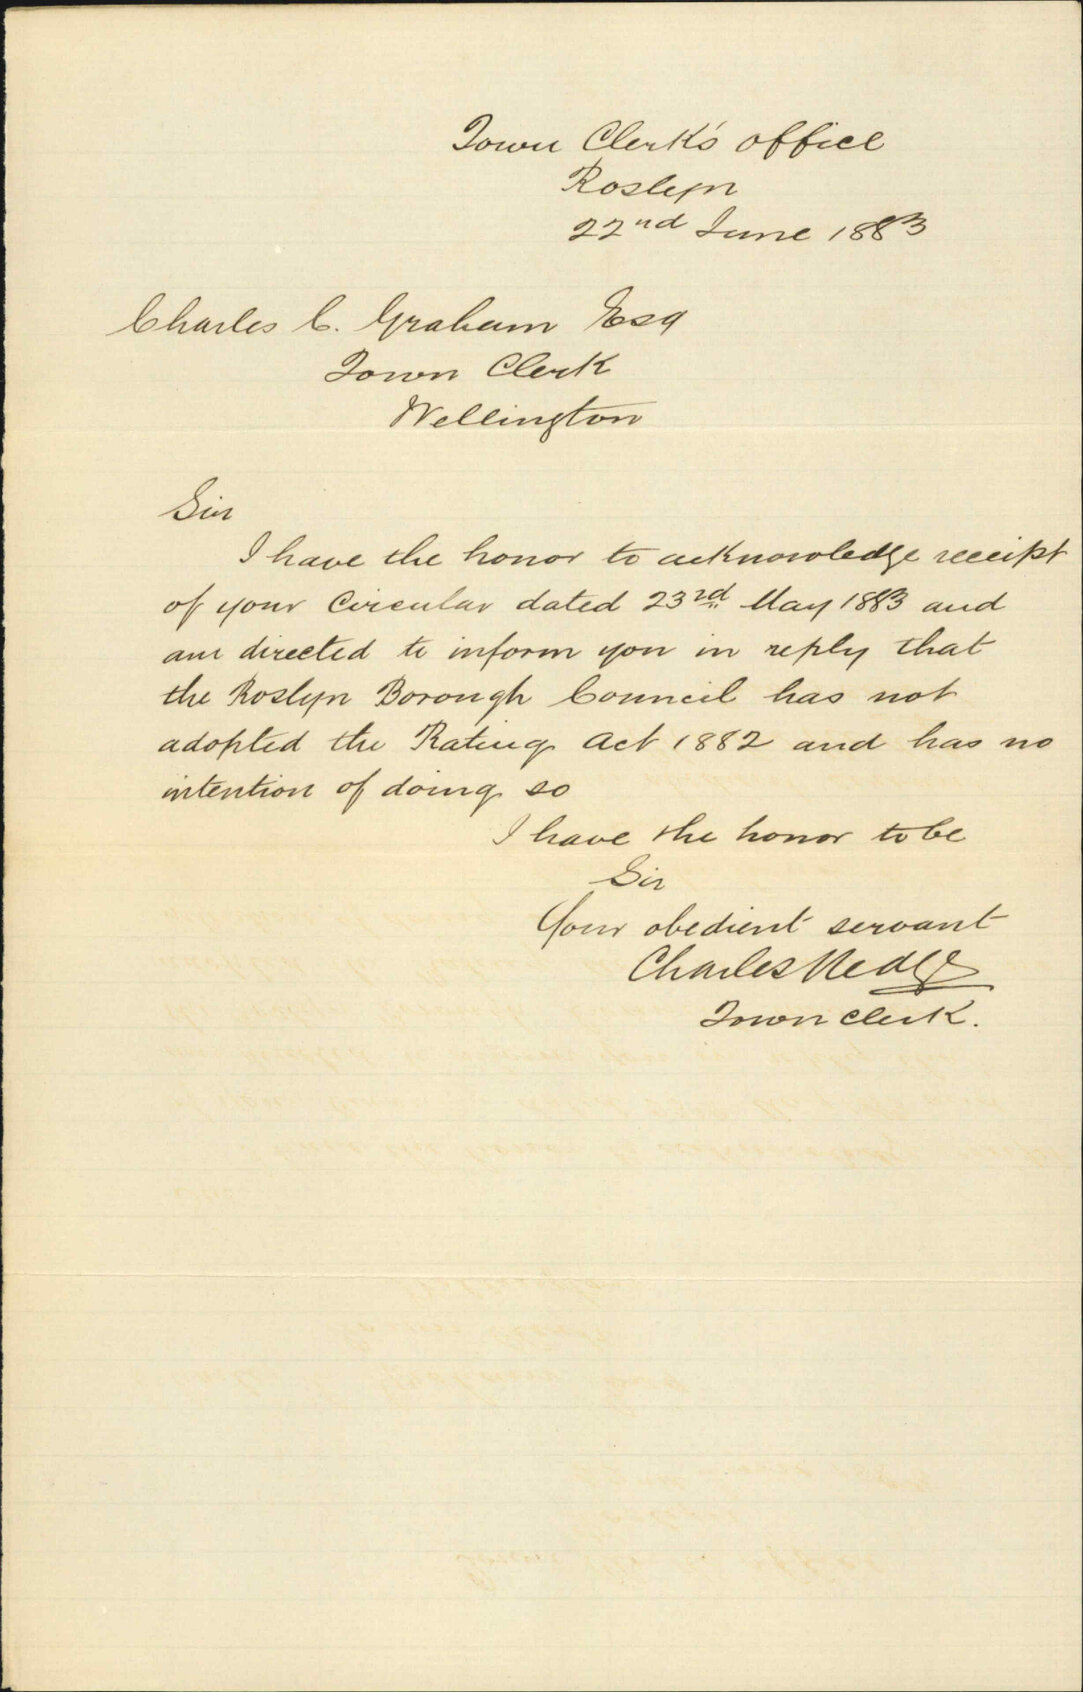 Town Clerk's office
Roslyn
22nd June 1883
Charles C. Graham Esq
Town Clerk
Wellington
Sir
I have the honor to acknowledge receipt
of your Circular dated 23rd May 1883 and
am directed to inform you in reply that
the Roslyn Borough Council has not
adopted the Rating Act 1882 and has no
intention of doing so
I have the honor to be
Sir
Your obedient servant
Charles
Town Clerk.